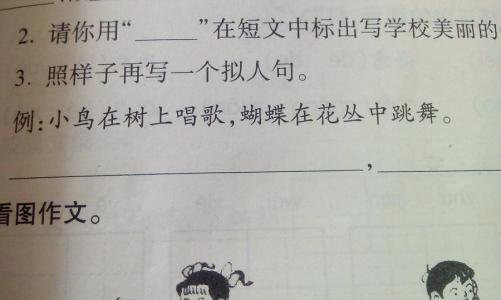 2. 请你用“_____”在短文中标出写学校美丽的
3. 照样子再写一个拟人句。
例:小鸟在树上唱歌,蝴蝶在花丛中跳舞。
,
看图作文。